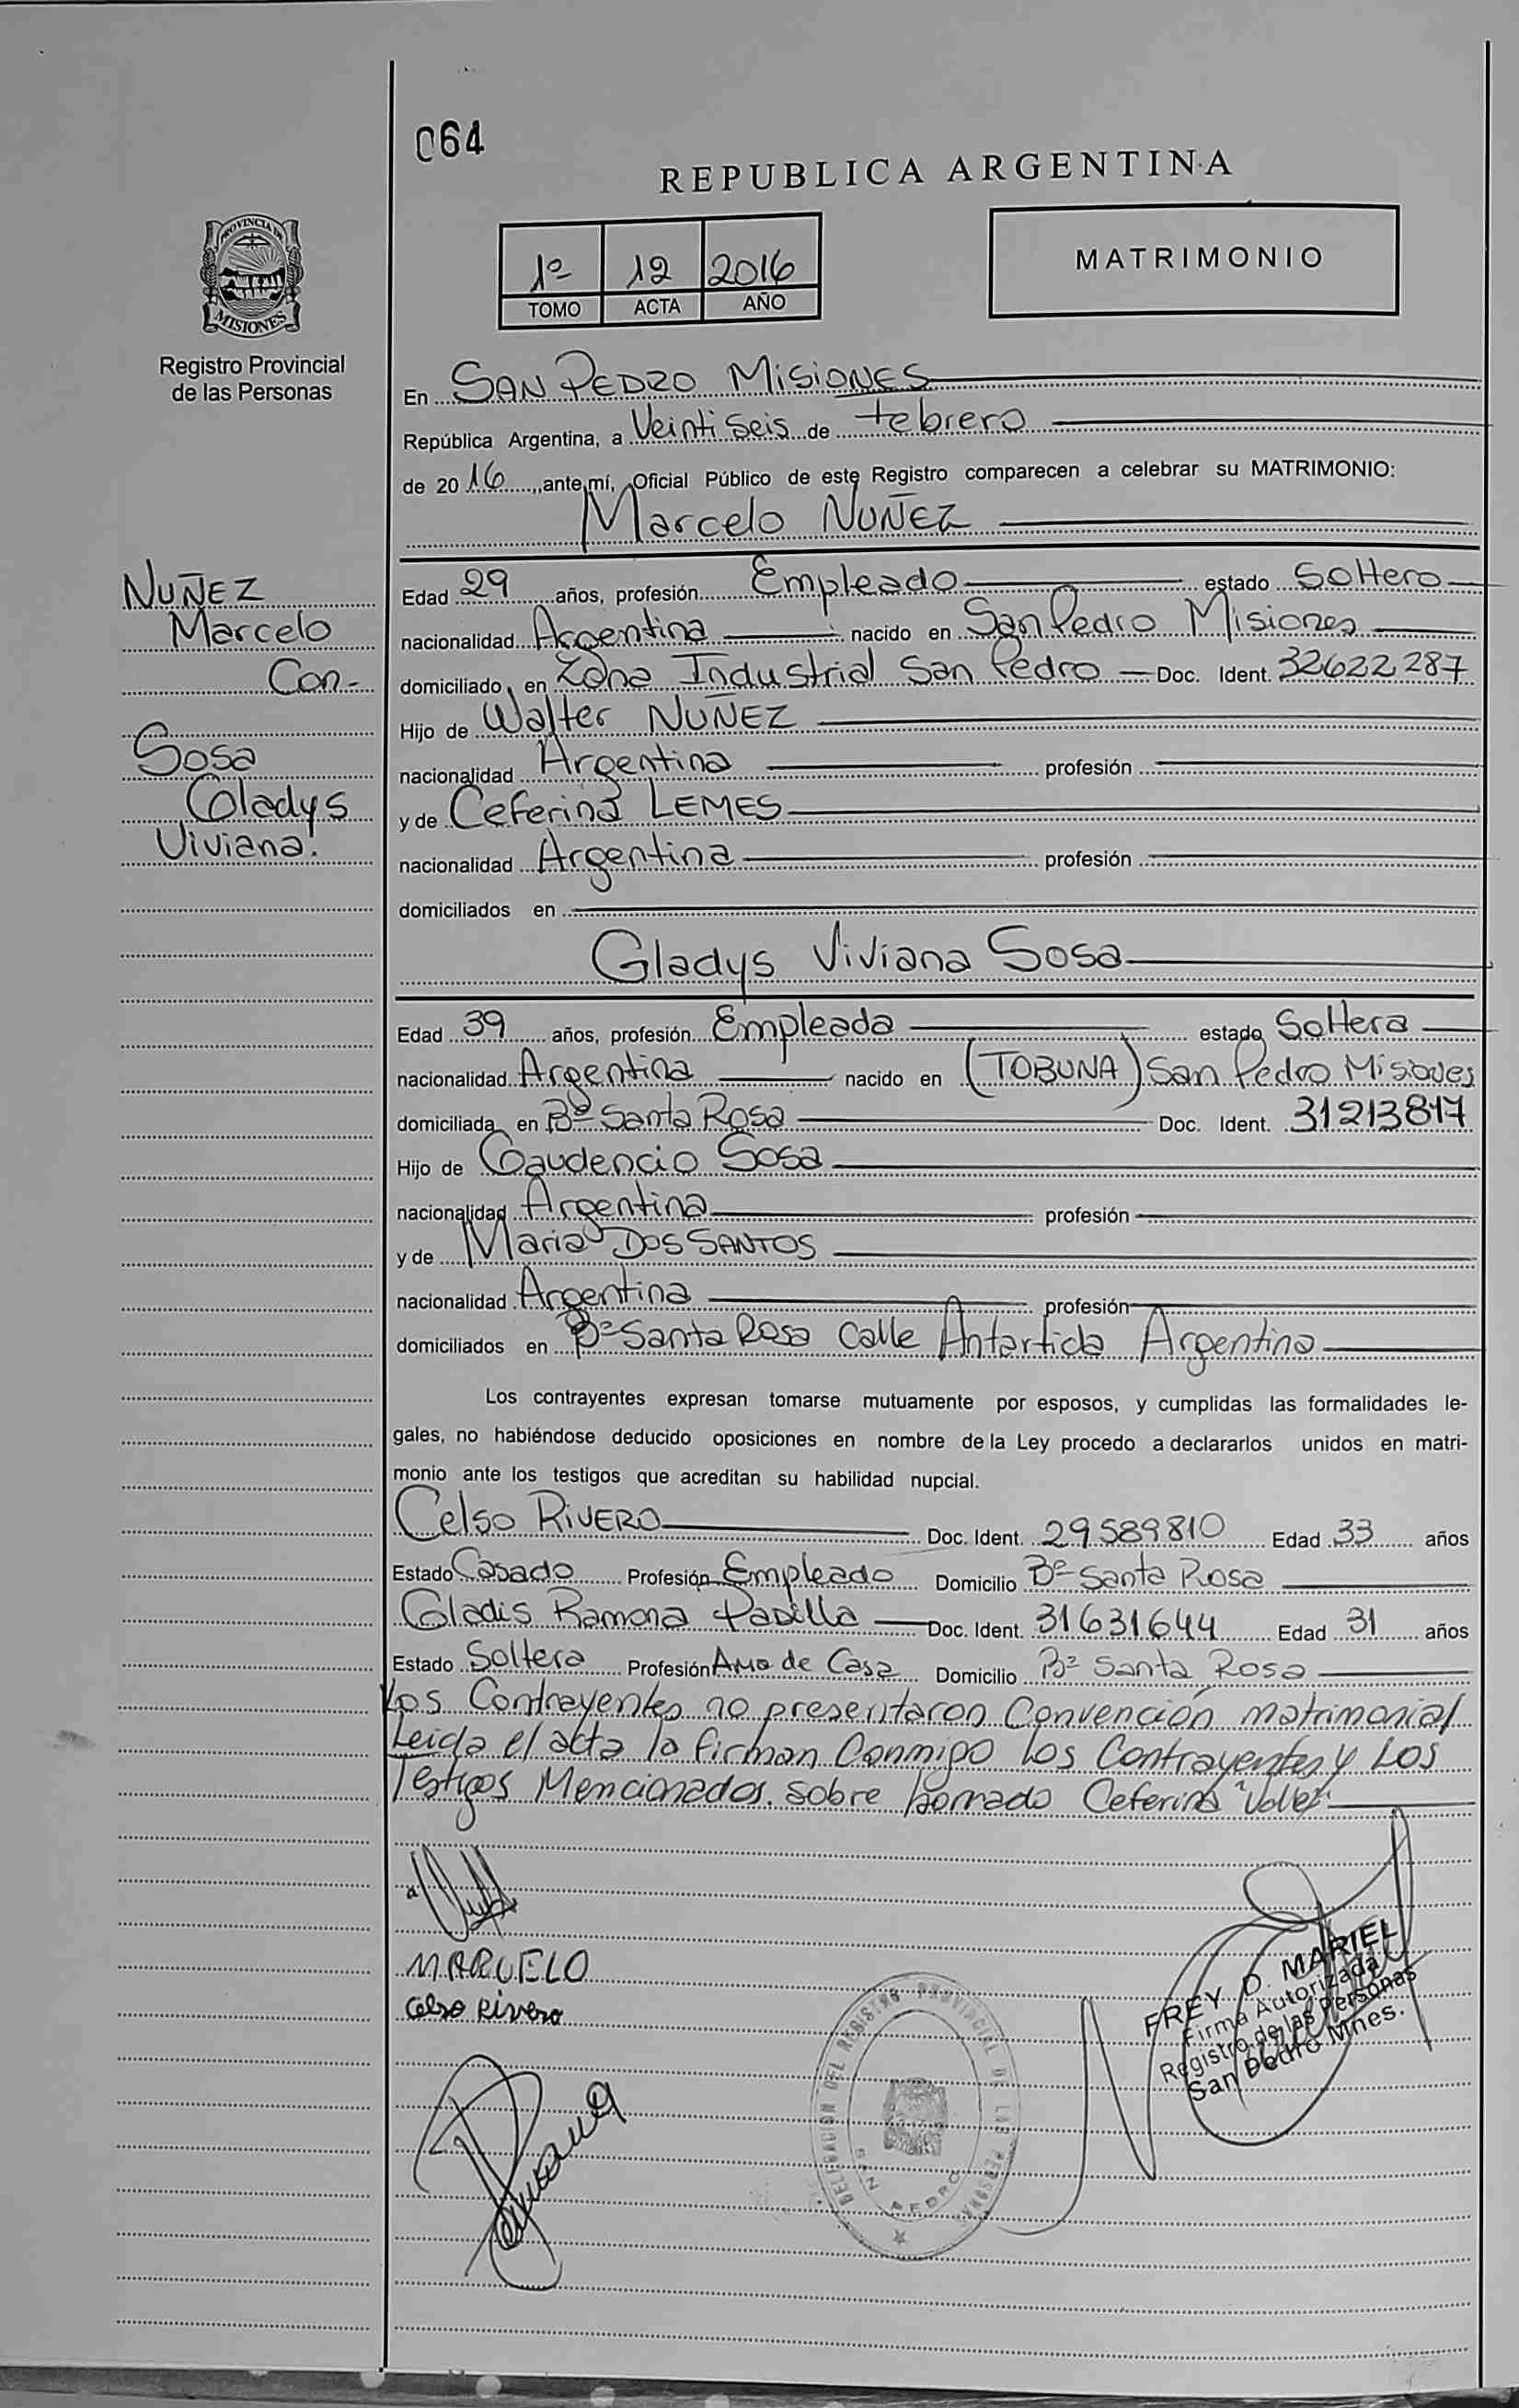 064
REPUBLICA ARGENTINA
PROVINCIA DE
MISIONES
Registro Provincial
de las Personas
1º 12 2016
TOMO ACTA AÑO
MATRIMONIO
En SAN PEDRO MISIONES
República Argentina, a Veintiseis de febrero
de 2016, ante mí, Oficial Público de este Registro comparecen a celebrar su MATRIMONIO:
Marcelo NUÑEZ
NUÑEZ
Marcelo
Con-
Sosa
Gladys
Viviana.
Edad 29 años, profesión Empleado estado Soltero
nacionalidad Argentina nacido en San Pedro Misiones
domiciliado en Zona Industrial San Pedro Doc. Ident. 32622287
Hijo de Walter NUÑEZ
nacionalidad Argentina profesión
y de Ceferina LEMES
nacionalidad Argentina profesión
domiciliados en
Gladys Viviana Sosa
Edad 39 años, profesión Empleada estado Soltera
nacionalidad Argentina nacido en (TOBUNA) San Pedro Misiones
domiciliada en Bº Santa Rosa Doc. Ident. 31213817
Hijo de Gaudencio Sosa
nacionalidad Argentina profesión
y de Maria DOS SANTOS
nacionalidad Argentina profesión
domiciliados en Bº Santa Rosa Calle Antartida Argentina
Los contrayentes expresan tomarse mutuamente por esposos, y cumplidas las formalidades le-
gales, no habiéndose deducido oposiciones en nombre de la Ley procedo a declararlos unidos en matri-
monio ante los testigos que acreditan su habilidad nupcial.
Celso RIVERO Doc. Ident. 29589810 Edad 33 años
Estado Casado Profesión Empleado Domicilio Bº Santa Rosa
Gladis Ramona Padilla Doc. Ident. 31631644 Edad 31 años
Estado Soltera Profesión Ama de Casa Domicilio Bº Santa Rosa
Los Contrayentes no presentaron Convención matrimonial
Leida el acta la firman Conmigo los Contrayentes y Los
Testigos Mencionados. sobre borrado Ceferina "Vale".
MARCELO
Celso Rivero
FREY D. MARIEL
Firma Autorizada
Registro de las Personas
San Pedro Mnes.
DELEGACION DEL REGISTRO PROVINCIAL DE LAS PERSONAS
SAN PEDRO